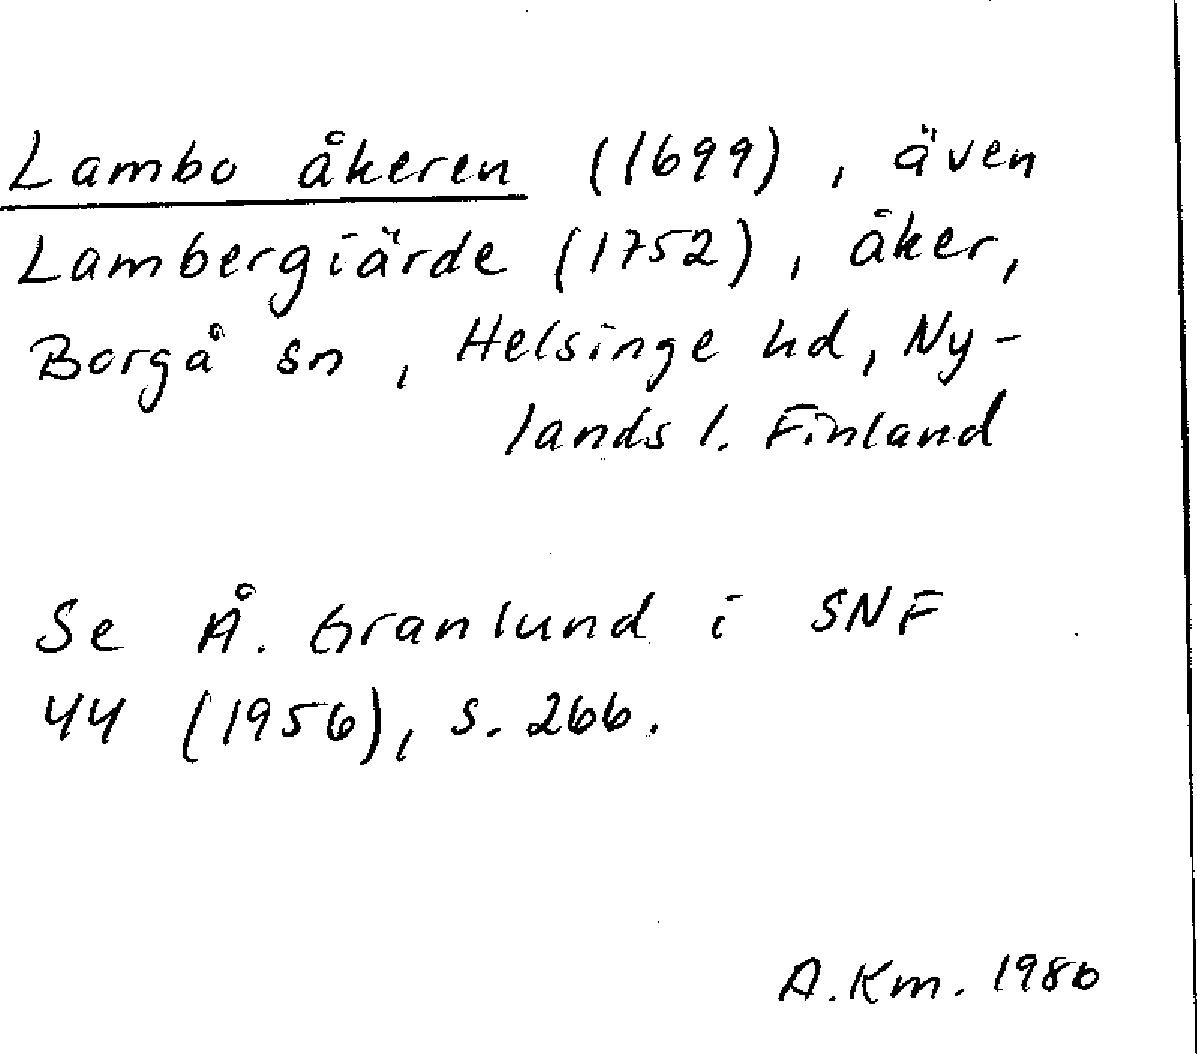 Lambo åkeren (1699), även
Lambergiärde (1752), åker,
Borgå sn, Helsinge hd, Ny-
lands l. Finland
Se Å. Granlund i SNF
44 (1956), s. 266.
A.Km. 1980